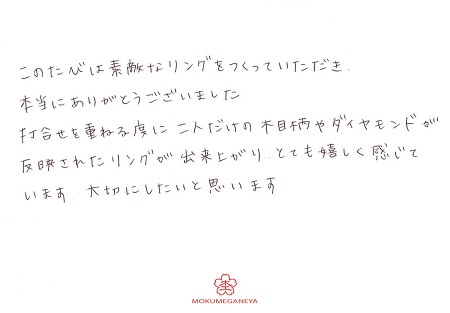 このたびは素敵なリングをつくっていただき、
本当にありがとうございました
打合せを重ねる度に二人だけの木目柄やダイヤモンドが
反映されたリングが出来上がり、とても嬉しく感じて
います。大切にしたいと思います
MOKUMEGANEYA